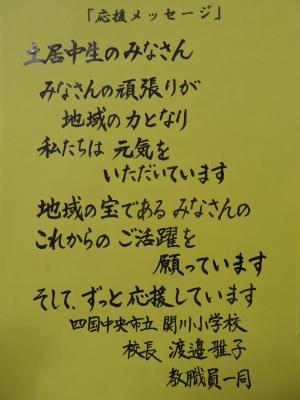 「応援メッセージ」
土居中生のみなさん
みなさんの頑張りが
地域の力となり
私たちは 元気を
いただいています
地域の宝である みなさんの
これからの ご活躍を
願っています
そして、ずっと応援しています
四国中央市立 関川小学校
校長 渡邉雅子
教職員一同